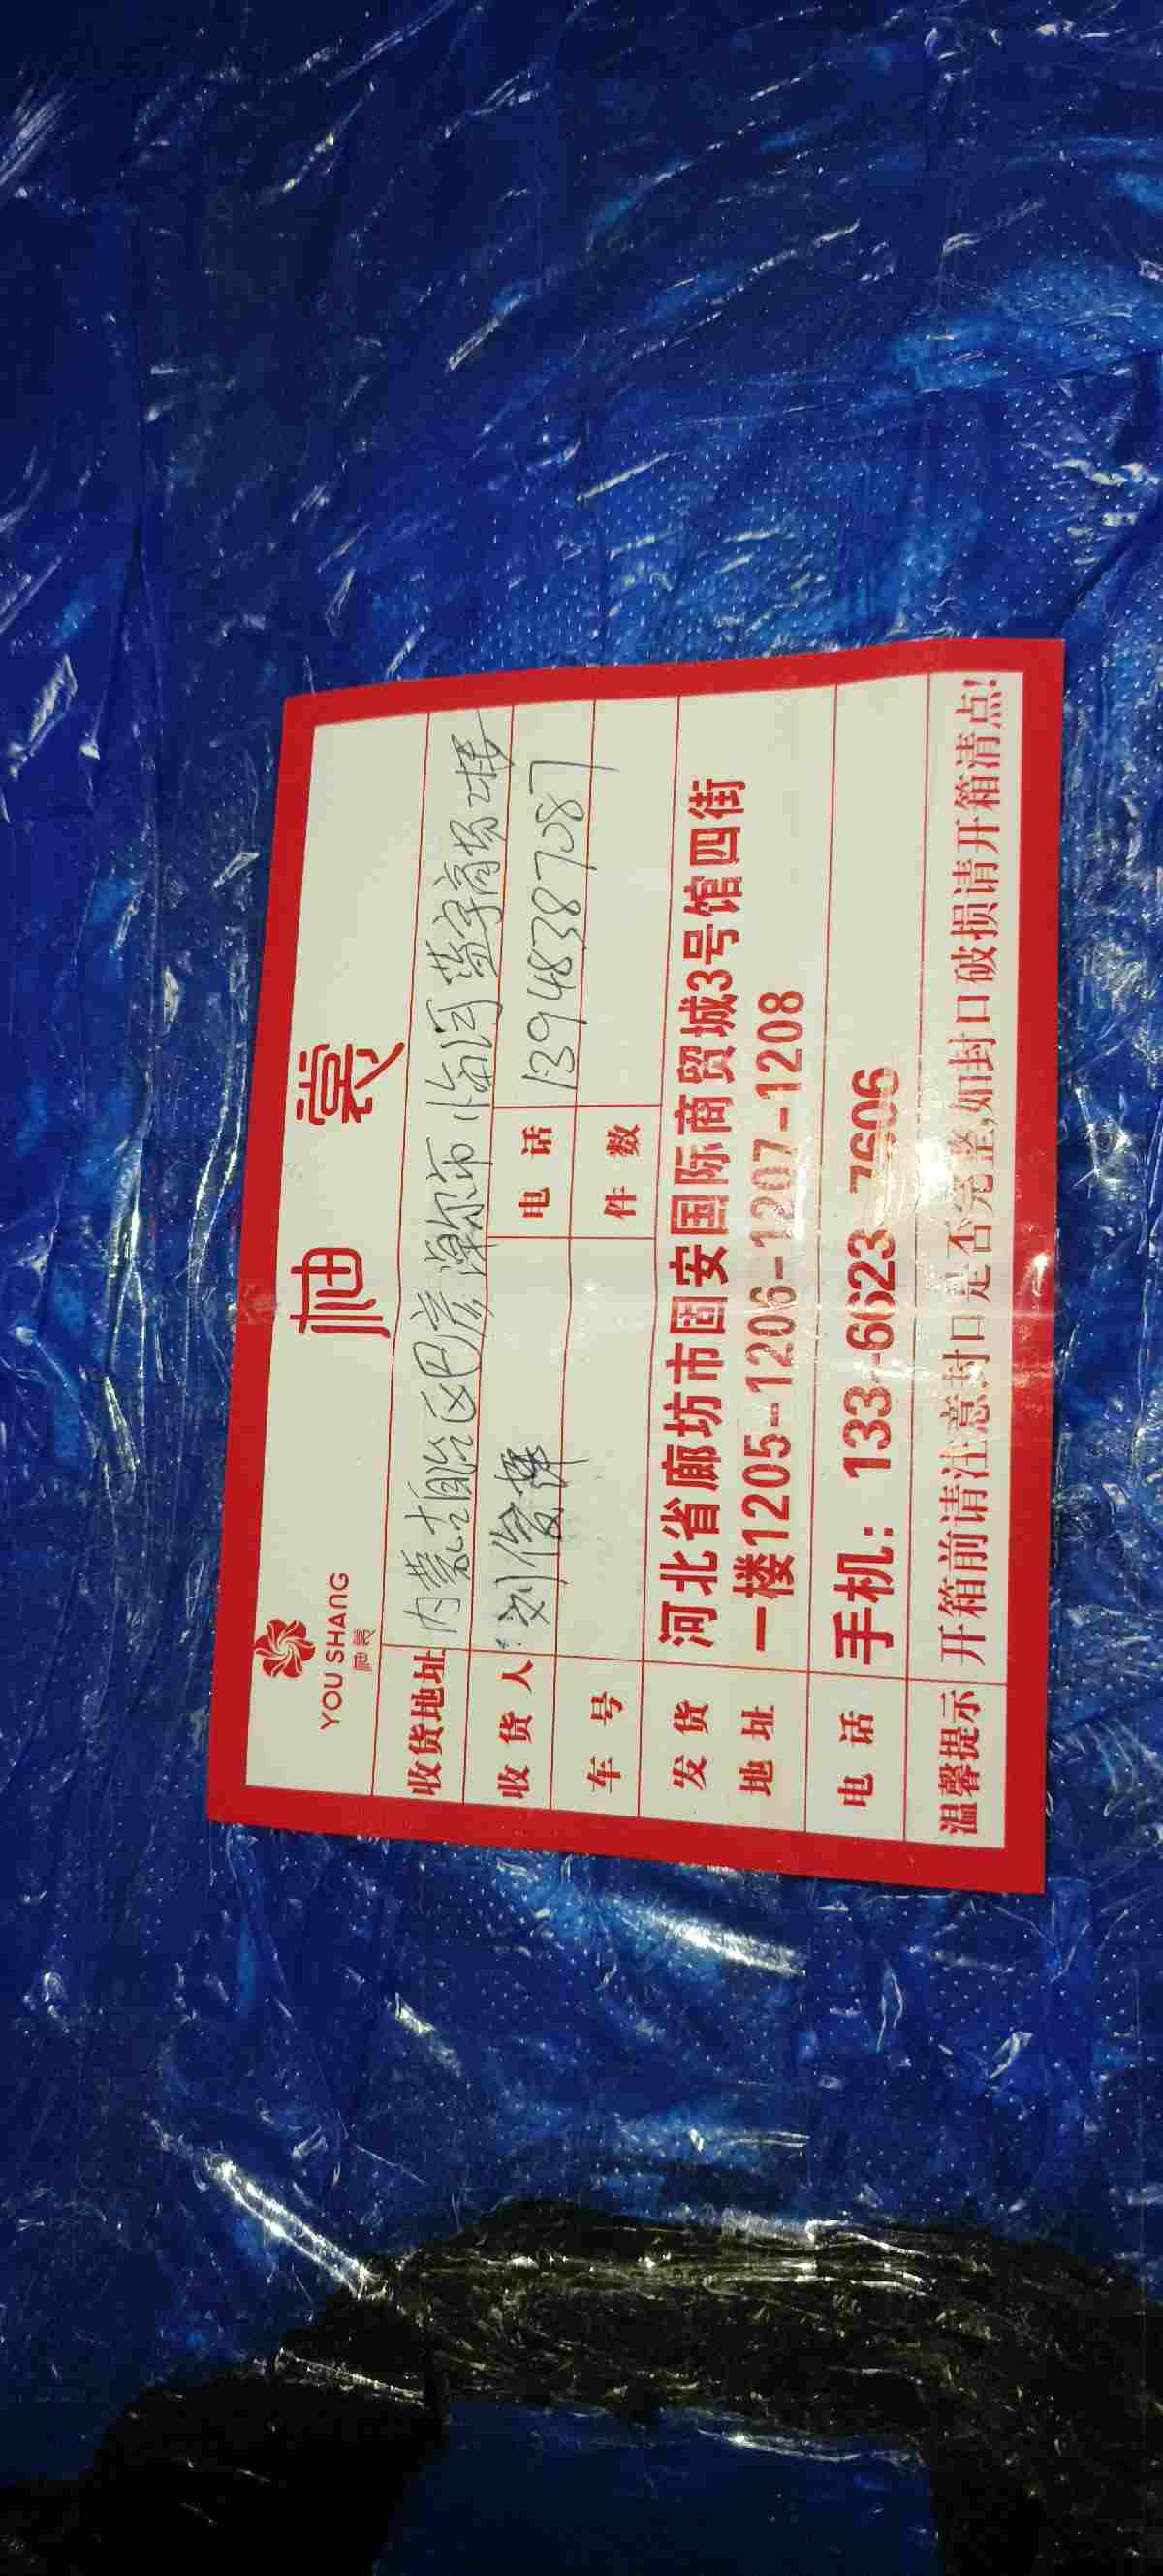 YOU SHANG
柚裳
柚 裳
收货地址 内蒙古自治区巴彦淖尔市临河 蓝宇商场2楼
收货人 刘俊 电话 13948387087
车号 件数
发货地址 河北省廊坊市固安国际商贸城3号馆四街
一楼1205-1206-1207-1208
电话 手机：133-6623-7606
温馨提示 开箱前请注意封口是否完整,如封口破损请开箱清点!